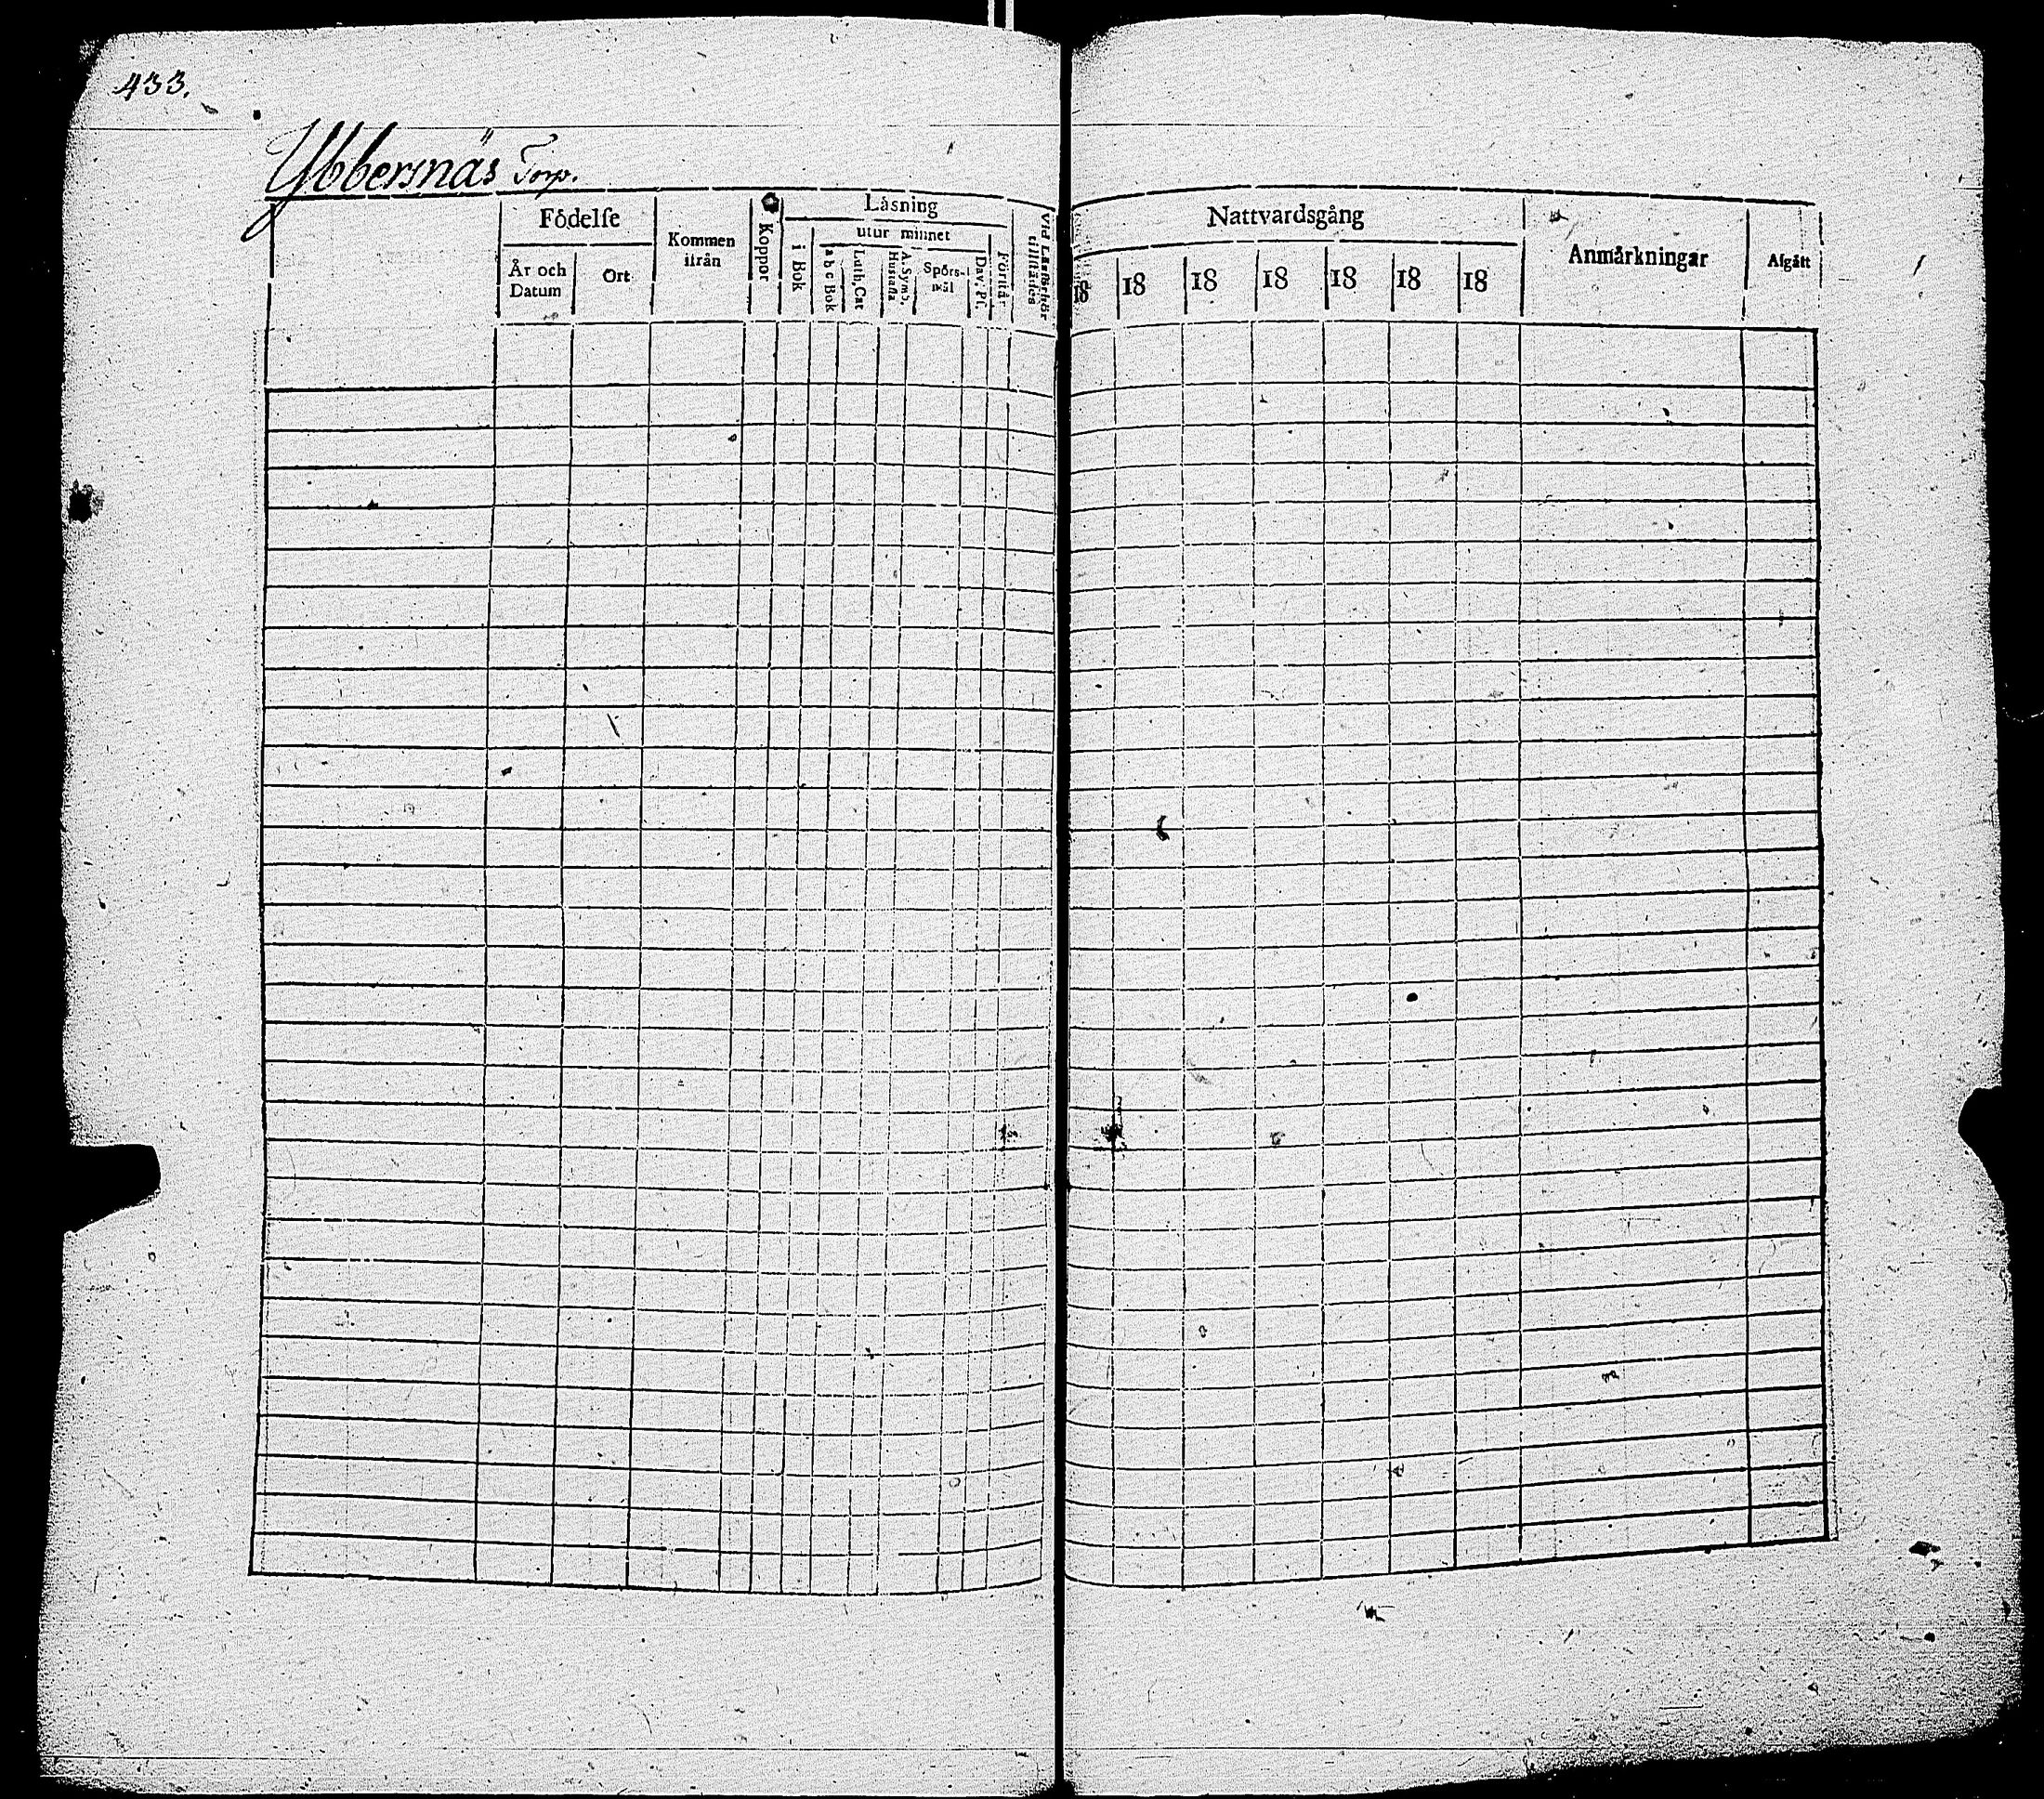 433.
Ybbernäs Torp.
Födelse
År och Datum
Ort
Kommen ifrån
Koppor
Låsning
i Bok
utur minnet
a b c Bok
Luth. Cat
A. Symb. Hustafla
Spörs-mål
Dav. Ps.
Förstår
Vid Läsförhör tillstädes
Nattvardsgång
18 18 18 18 18 18 18
Anmårkningar
Afgått